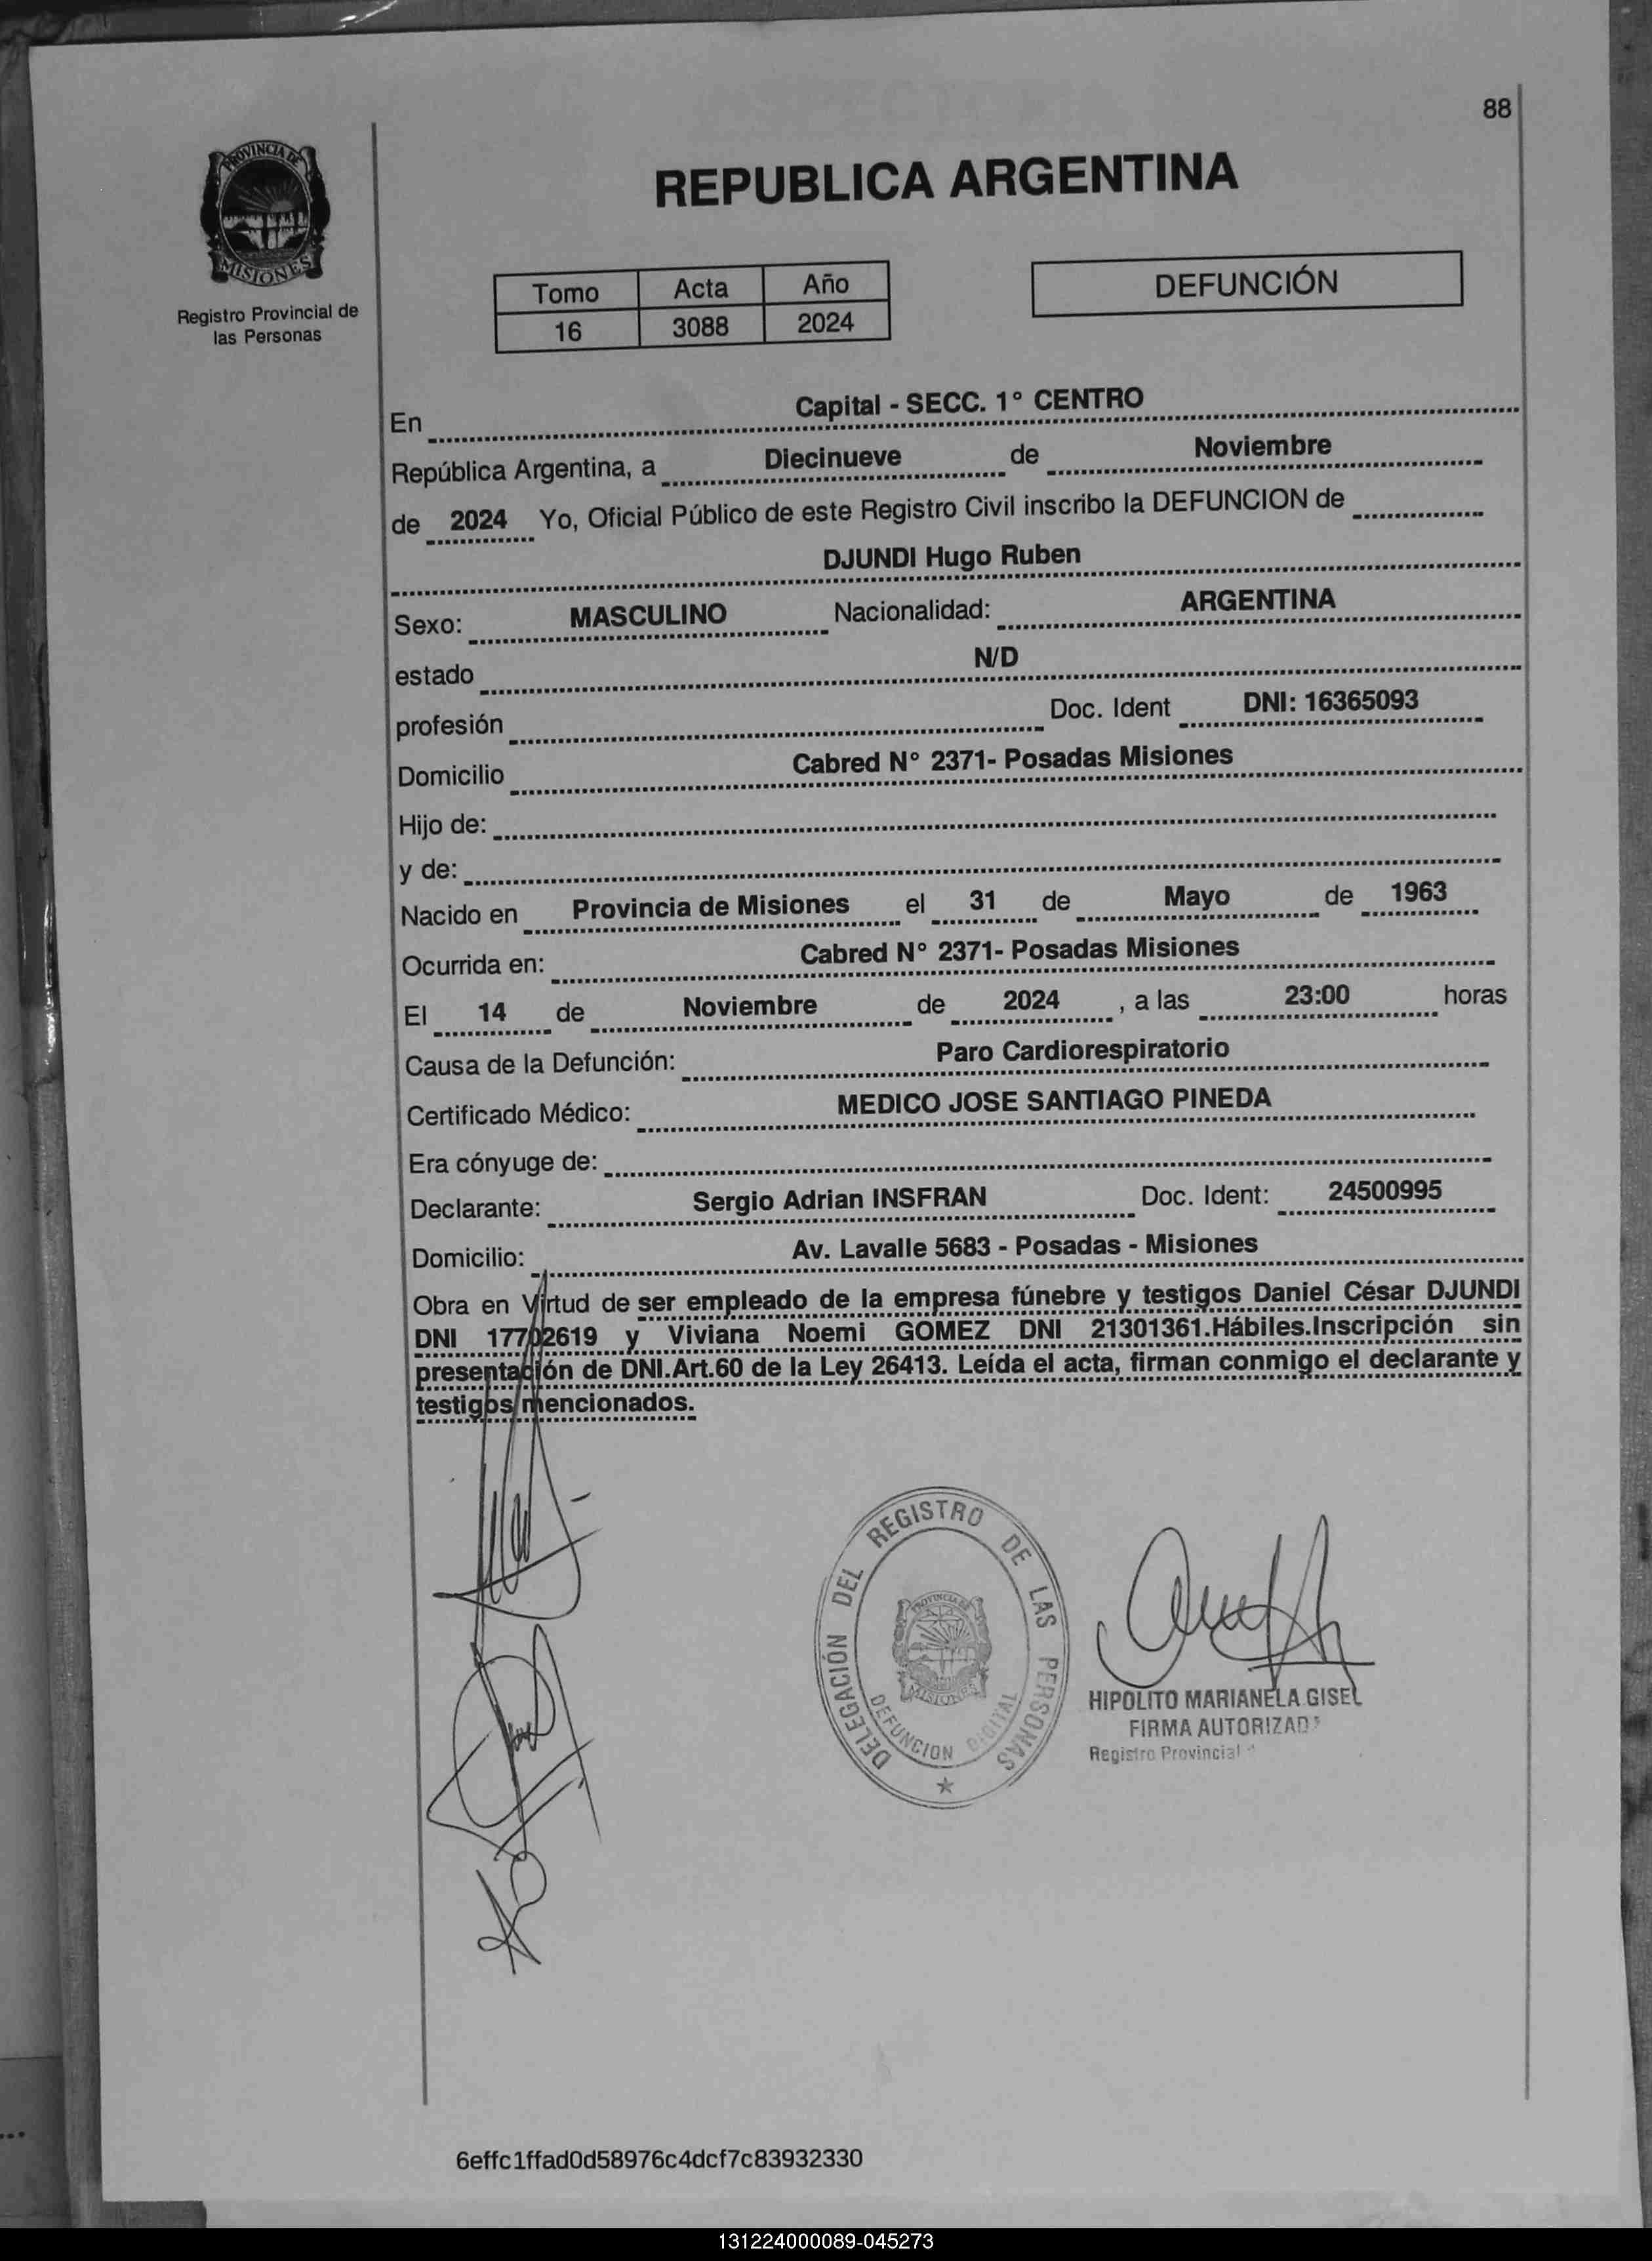 88
PROVINCIA DE
MISIONES
Registro Provincial de
las Personas
REPUBLICA ARGENTINA
Tomo Acta Año
16 3088 2024
DEFUNCIÓN
En Capital - SECC. 1° CENTRO
República Argentina, a Diecinueve de Noviembre
de 2024 Yo, Oficial Público de este Registro Civil inscribo la DEFUNCION de
DJUNDI Hugo Ruben
Sexo: MASCULINO Nacionalidad: ARGENTINA
estado N/D
profesión Doc. Ident DNI: 16365093
Domicilio Cabred N° 2371- Posadas Misiones
Hijo de:
y de:
Nacido en Provincia de Misiones el 31 de Mayo de 1963
Ocurrida en: Cabred N° 2371- Posadas Misiones
El 14 de Noviembre de 2024 , a las 23:00 horas
Causa de la Defunción: Paro Cardiorespiratorio
Certificado Médico: MEDICO JOSE SANTIAGO PINEDA
Era cónyuge de:
Declarante: Sergio Adrian INSFRAN Doc. Ident: 24500995
Domicilio: Av. Lavalle 5683 - Posadas - Misiones
Obra en Virtud de ser empleado de la empresa fúnebre y testigos Daniel César DJUNDI
DNI 17702619 y Viviana Noemi GOMEZ DNI 21301361.Hábiles.Inscripción sin
presentación de DNI.Art.60 de la Ley 26413. Leída el acta, firman conmigo el declarante y
testigos mencionados.
DELEGACIÓN DEL REGISTRO DE LAS PERSONAS
PROVINCIA DE
MISIONES
DEFUNCION DIGITAL
HIPOLITO MARIANELA GISEL
FIRMA AUTORIZAD
Registro Provincial
6effc1ffad0d58976c4dcf7c83932330
131224000089-045273